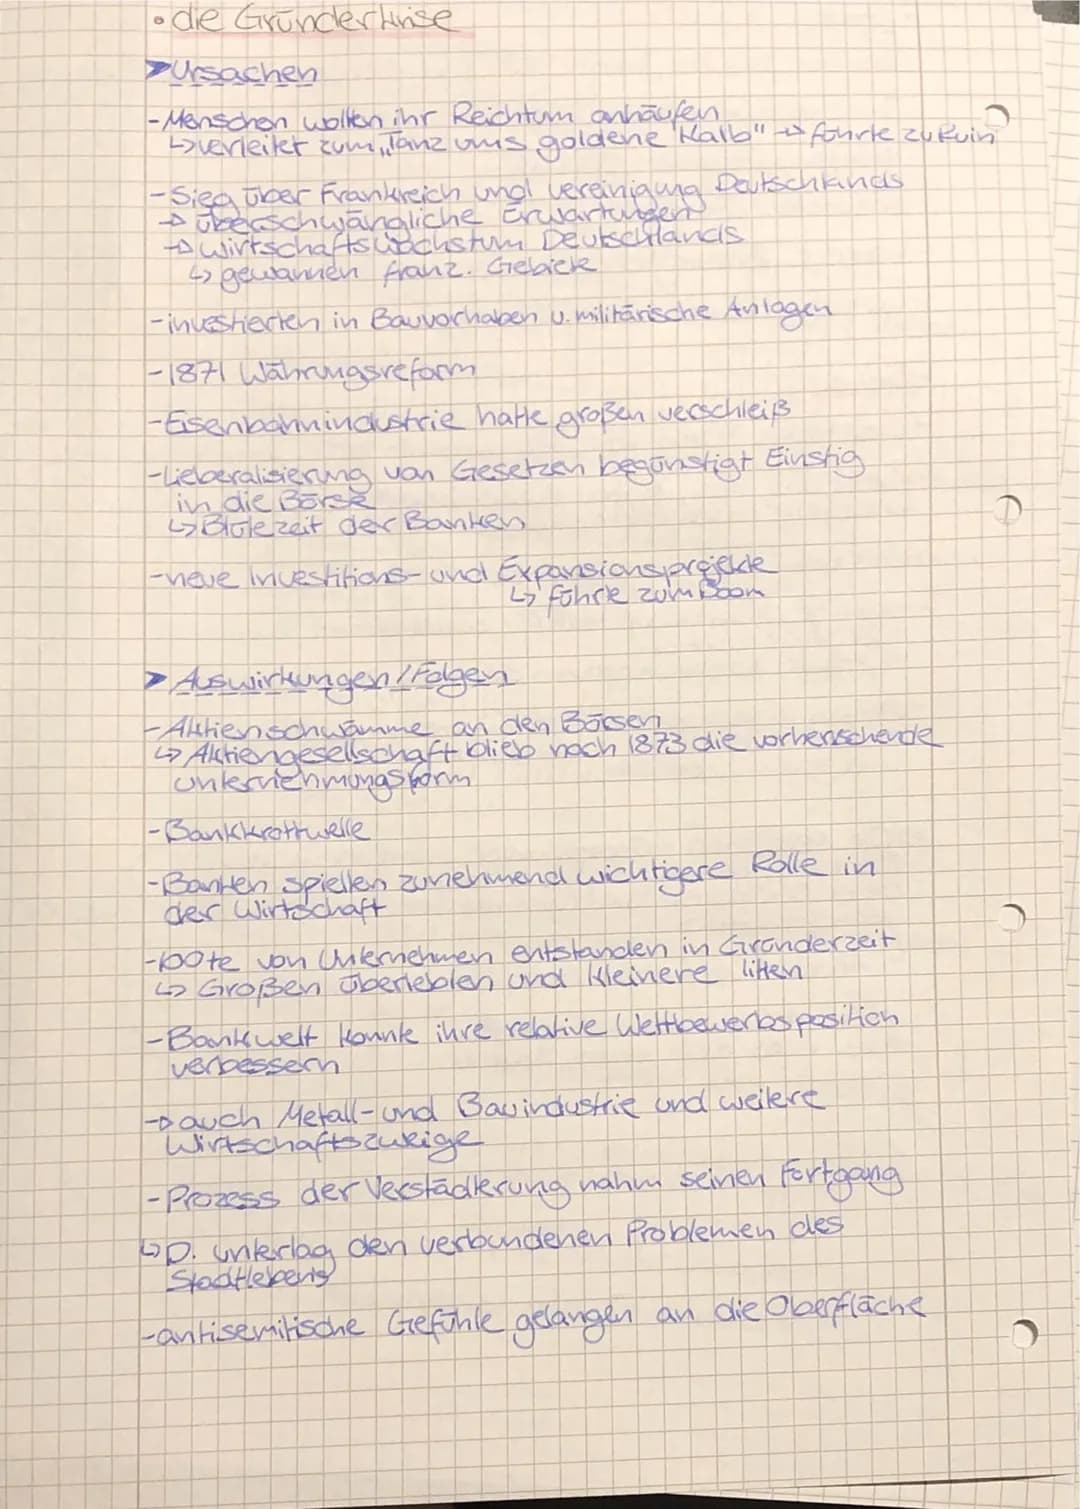 • die Gründerkrise
➤ Ursachen
- Menschen wollten ihr Reichtum anhäufen
↳ verleitet zum „Tanz ums goldene Kalb" → führte zu Ruin
- Sieg über Frankreich und vereinigung Deutschlands
→ überschwängliche Erwartungen
→ Wirtschaftswachstum Deutschlands
↳ gewannen franz. Gebiete
- investierten in Bauvorhaben u. militärische Anlagen
- 1871 Währungsreform
- Eisenbahnindustrie hatte großen verschleiß
- Lieberalisierung von Gesetzen begünstigt Einstig
in die Börse
↳ Blütezeit der Banken
- neue Investitions- und Expansionsprojekte
↳ führte zum Boom
➤ Auswirkungen / Folgen
- Aktienschwämme an den Börsen
↳ Aktiengesellschaft blieb nach 1873 die vorherrschende
Unternehmungsform
- Bankkrottwelle
- Banken spielten zunehmend wichtigere Rolle in
der Wirtschaft
- 100te von Unternehmen entstanden in Gründerzeit
↳ Großen überlebten und kleinere litten
- Bankwelt konnte ihre relative Wettbewerbsposition
verbessern
→ auch Metall- und Bauindustrie und weitere
Wirtschaftszweige
- Prozess der Verstädterung nahm seinen Fortgang
↳ D. unterlag den verbundenen Problemen des
Stadtlebens
- antisemitische Gefühle gelangen an die Oberfläche